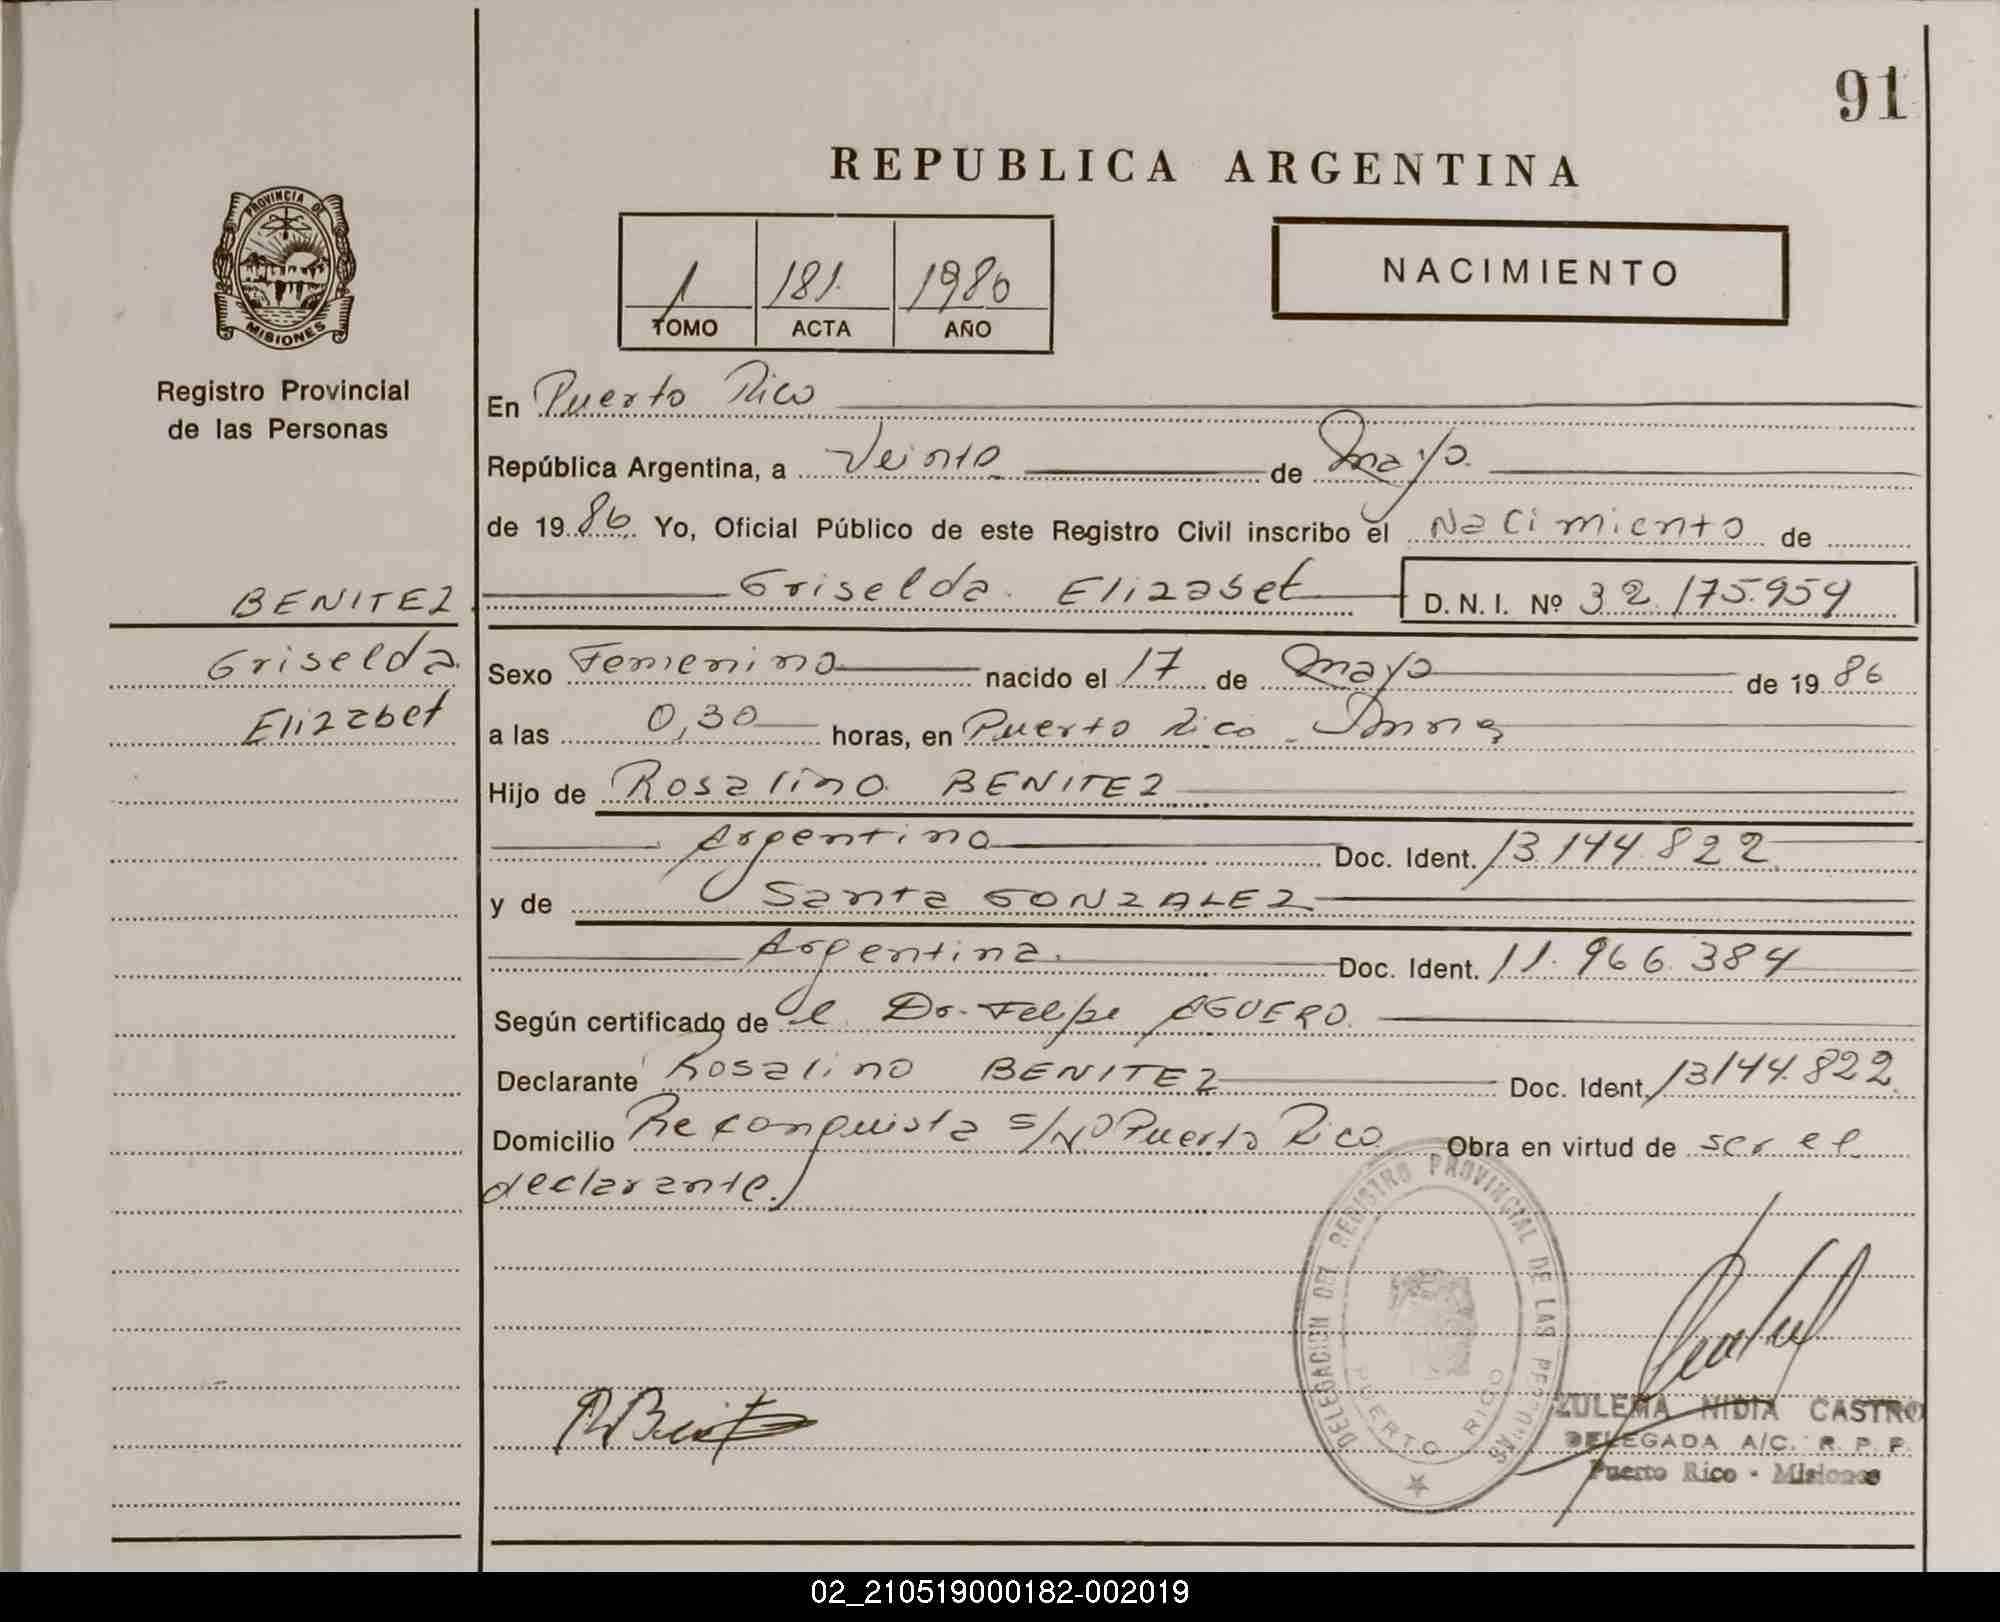 91
REPUBLICA ARGENTINA
PROVINCIA DE
MISIONES
Registro Provincial
de las Personas
1 181 1986
TOMO ACTA AÑO
NACIMIENTO
En Puerto Rico
República Argentina, a Veinte de Mayo.
de 1986. Yo, Oficial Público de este Registro Civil inscribo el Nacimiento de
BENITEZ
Griselda Elizabet D. N. I. Nº 32.175.959
Griselda
Elizabet
Sexo Femenino nacido el 17 de Mayo de 1986
a las 0,30 horas, en Puerto Rico -
Hijo de Rosalino BENITEZ
Argentino Doc. Ident. 13.144.822
y de Santa GONZALEZ
Argentina. Doc. Ident. 11.966.384
Según certificado de el Dr. Felipe AGUERO.
Declarante Rosalino BENITEZ Doc. Ident. 13144.822.
Domicilio Reconquista S/Nº Puerto Rico. Obra en virtud de ser el
declarante.
DELEGACION DEL REGISTRO PROVINCIAL DE LAS PERSONAS
PUERTO RICO
ZULEMA NIDIA CASTRO
DELEGADA A/C. R. P. P.
Puerto Rico - Misiones
02_210519000182-002019